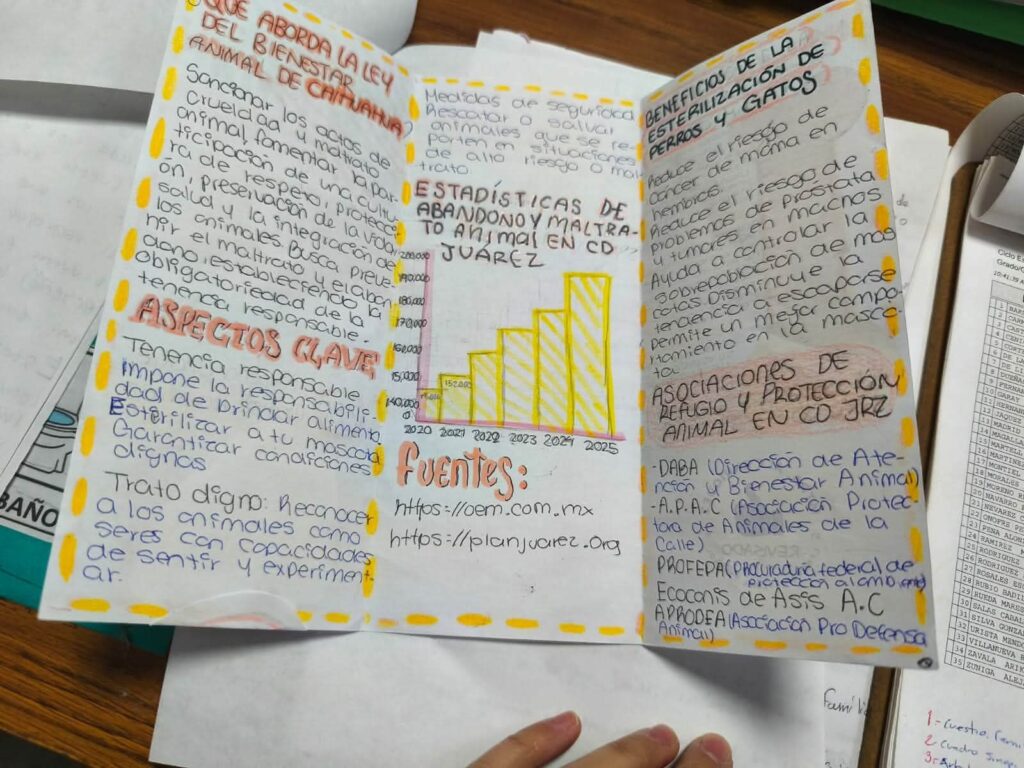 QUE ABORDA LA LEY
DEL BIENESTAR
ANIMAL DE CHIHUAHUA
Sancionar los actos de
crueldad y maltrato
animal, fomentar la par-
ticipación de una cultu-
ra de respeto, protecci-
ón, preservación de la vida
salud y la integración de
los animales. Busca preve-
nir el maltrato y el aban
dono, estableciendo la
obligatoriedad de la
tenencia responsable.
ASPECTOS CLAVE
Tenencia responsable
Impone la responsabili-
dad de brindar alimento
Esterilizar a tu mascota
Garantizar condiciones
dignas
Trato digno: Reconocer
a los animales como
seres con capacidades
de sentir y experiment-
ar.
Medidas de seguridad
Rescatar o salvar
animales que se re-
porten en situaciones
de alto riesgo o mal-
trato
ESTADÍSTICAS DE
ABANDONO Y MALTRA-
TO ANIMAL EN CD
JUAREZ
200,000
190,000
180,000
170,000
160,000
15,000
140,000
0
152,000
2020 2021 2022 2023 2024 2025
fuentes:
https://oem.com.mx
https://planjuarez.org
BENEFICIOS DE LA
ESTERILIZACIÓN DE
PERROS Y GATOS
Reduce el riesgo de
cancer de mama en
hembras.
Reduce el riesgo de
problemas de prostata
y tumores en machos
Ayuda a controlar la
sobrepoblación de mas
cotas Disminuye la
tendencia a escaparse
permite un mejor compo
rtamiento en la masco-
ta
ASOCIACIONES DE
REFUGIO Y PROTECCIÓN
ANIMAL EN CD JRZ
-DABA (Dirección de Ate-
nción y Bienestar Animal)
-A.P.A.C (Asociación Protec
tora de Animales de la
Calle)
PROFEPA (procuraduría federal de
protección al ambiente)
Ecocanis de Asis A.C
APRODEA (Asociación Pro Defensa
Animal)
BAÑO
Ciclo Es
Grado/G
27 ROSALES
28 RUBIO
29 RUEDA
30 SALAS
31 SILVA
32 URISTA
33 VILLANUEVA
34 ZAVALA
35 ZUÑIGA
1.- Cuestio.
2. Cuadro